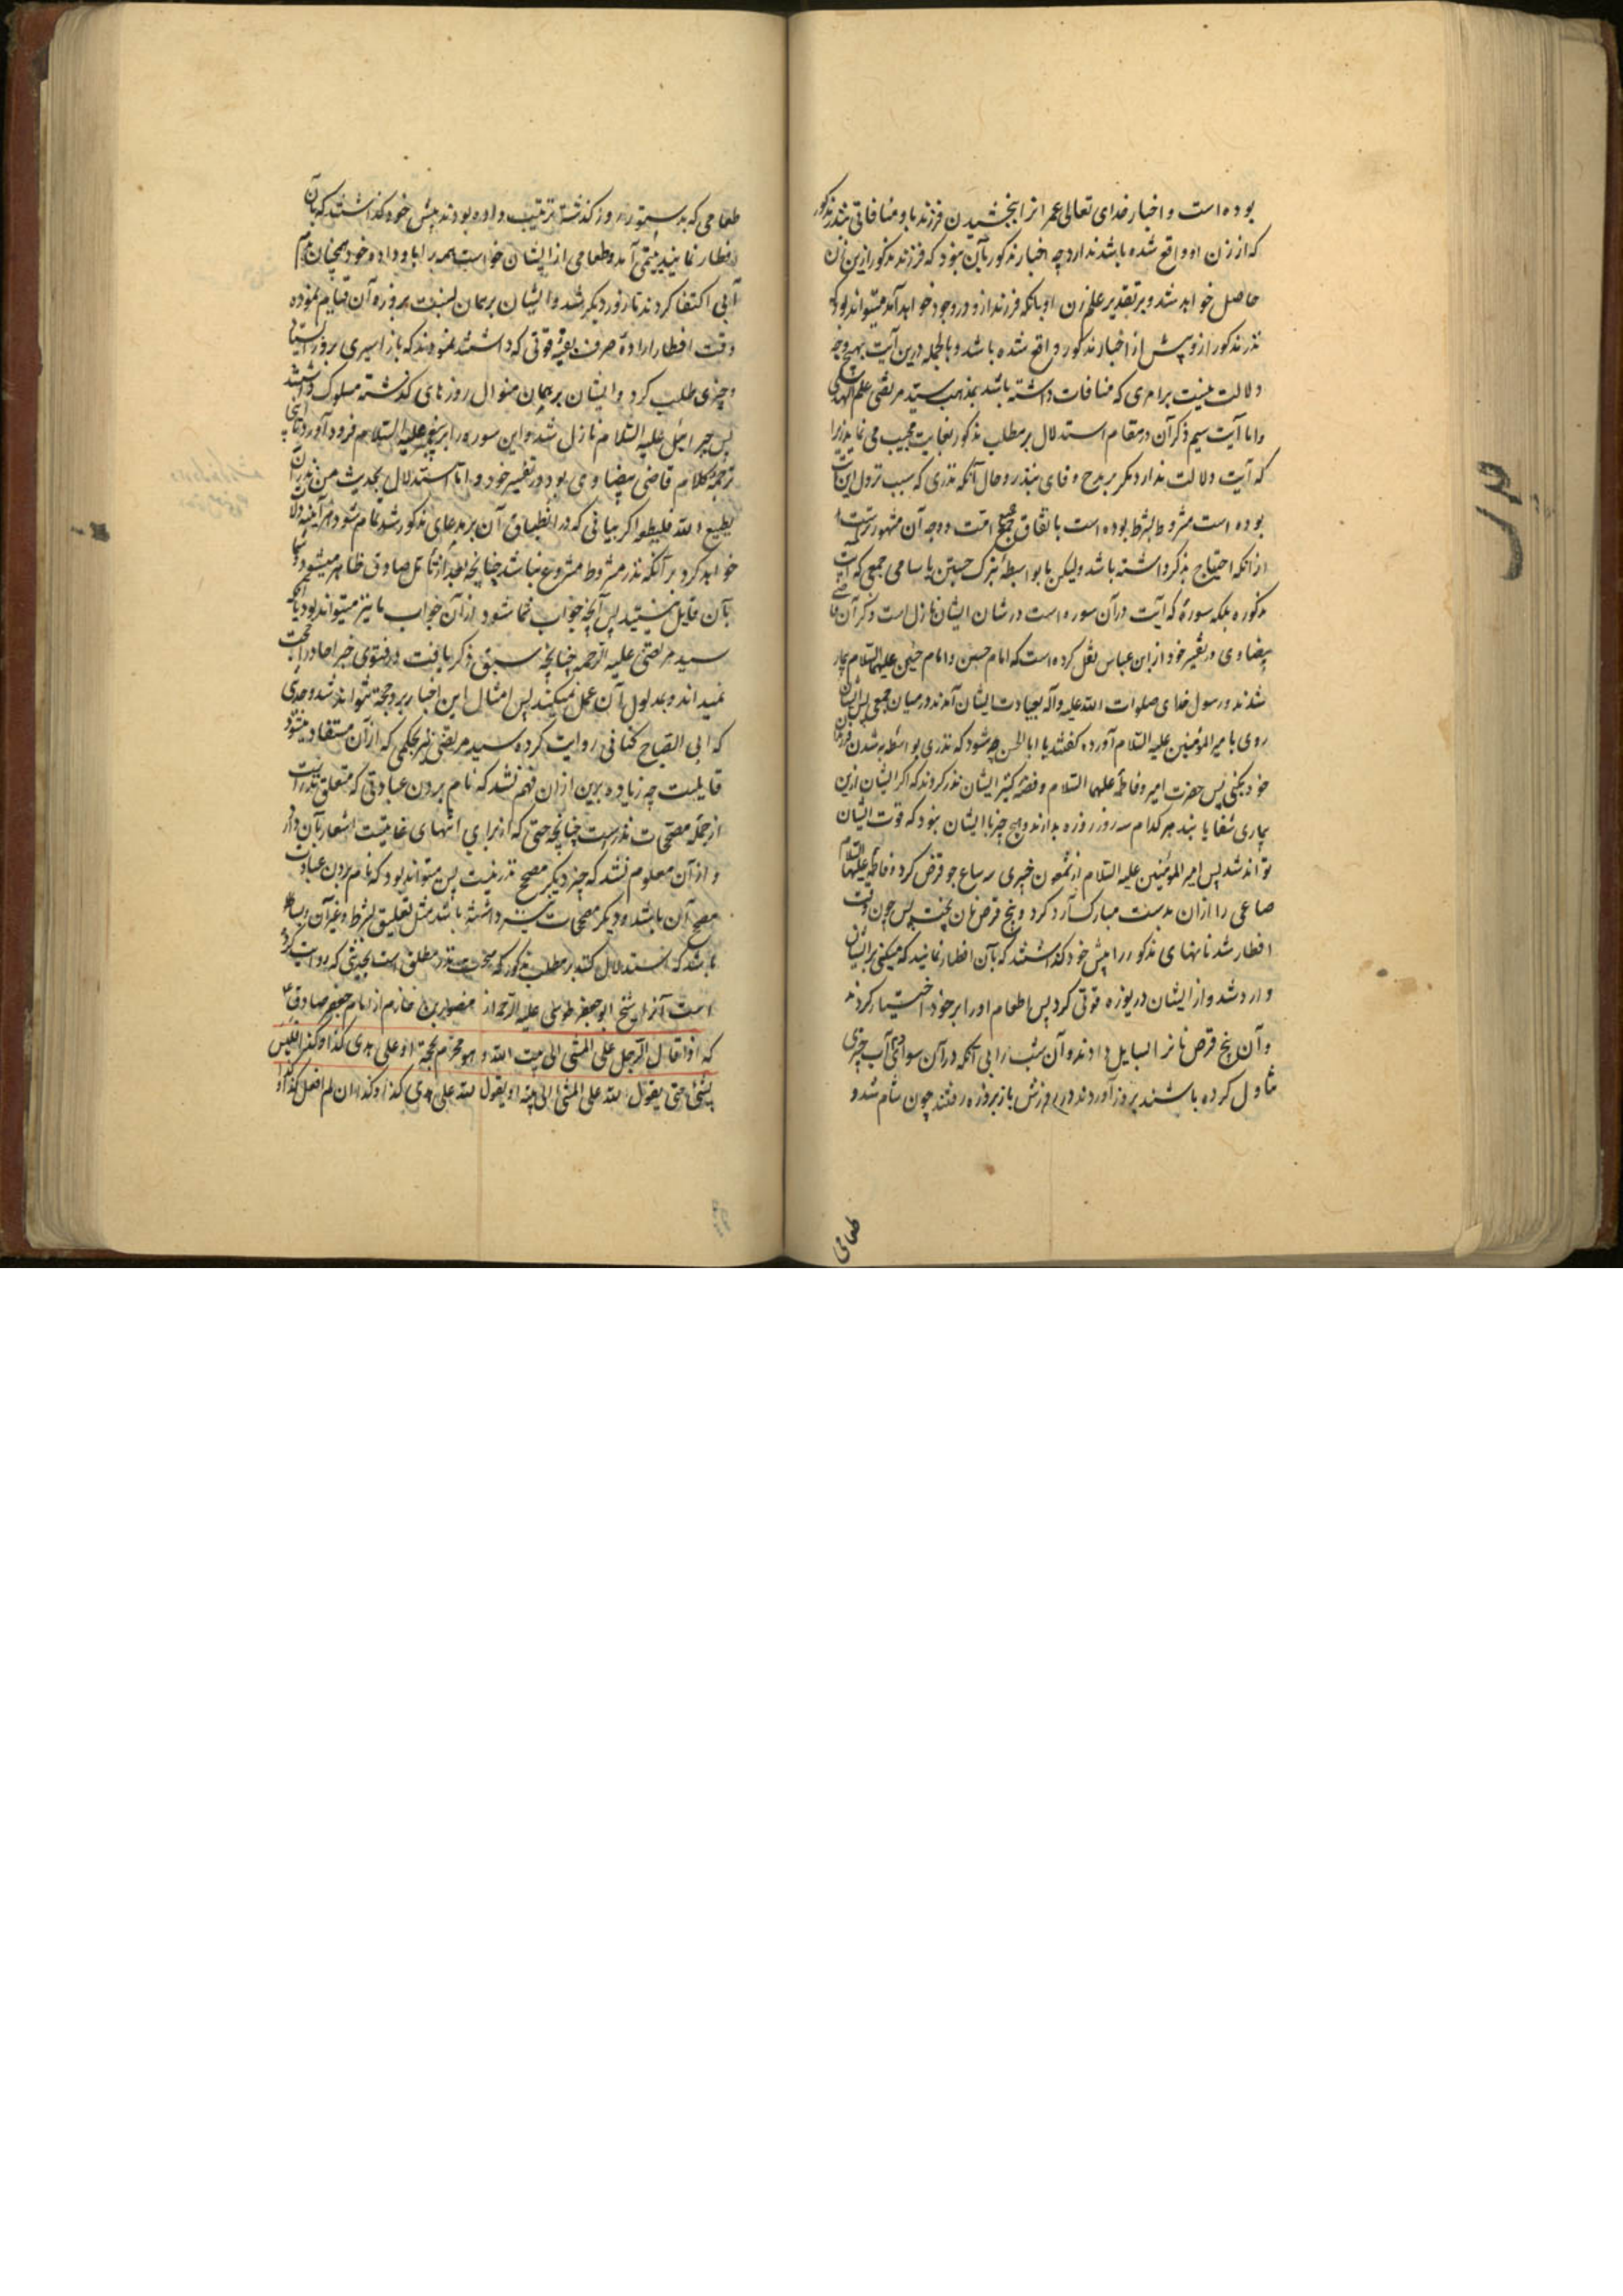 بوده است و اخبار خدای تعالی عمرانرا ببخشیدن فرزند باو منافاتی بنذر مذکور
که از زن او واقع شده باشد ندارد چه اخبار مذکور بآن نبود که فرزند مذکور ازین زن
حاصل خواهد شد و بر تقدیر علم زن او بانکه فرزند ازو در وجود خواهد آمد میتواند بود که
نذر مذکور ازو پیش از اخبار مذکور واقع شده باشد و بالجمله درین آیت بهیچ وجه
دلالت نیست برامری که منافات داشته باشد بمذهب سید مرتضی علم الهدی
واما آیت سیم ذکر آن در مقام استدلال بر مطلب مذکور بغایت عجیب می نماید زیرا
که آیت دلالت ندارد مکر بر مدح وفای بنذر و حال آنکه نذری که سبب نزول این آیت
بوده است مشروط بشرط بوده است باتفاق جمیع امت و وجه آن مشهورتر است
از انکه احتیاج بذکر داشته باشد ولیکن بواسطهٔ تبرک جستن باسامی جمعی که آیت
مذکوره بلکه سورهٔ که آیت در آن سوره است در شان ایشان نازل است ذکر آن قاضی
بیضاوی در تفسیر خود از ابن عباس نقل کرده است که امام حسن و امام حسین علیهما السلام بیمار
شدند و رسول خدای صلوات الله علیه وآله بعیادت ایشان آمدند در میان جمعی پس ایشان
روی بامیرالمؤمنین علیه السلام آورده کفتند یا ابا الحسن چه شود که نذری بواسطهٔ به شدن فرزندان
خود بکنی پس حضرت امیر و فاطمه علیهما السلام و فضّه کنیز ایشان نذر کردند که اکر ایشان ازین
بیماری شفا یابند هر کدام سه روز روزه بدارند و هیچ چیز با ایشان نبود که قوت ایشان
تواند شد پس امیرالمؤمنین علیه السلام از شمعون خیبری سه صاع جو قرض کرد و فاطمه علیها السلام
صاعی را ازان بدست مبارک آرد کرد و پنج قرص نان پخت پس چون وقت
افطار شد نانهای مذکور را پیش خود کذاشتند که بآن افطار نمایند که مسکینی بر ایشان
وارد شد و از ایشان دریوزه قوتی کرد پس اطعام او را بر خود اختیار کردند
و آن پنج قرص نانرا بسایل دادند و آن شب را بی آنکه در آن سوای آب چیزی
تناول کرده باشند بروز آوردند و در روزش باز بروزه رفتند چون شام شد و
طعامی
طعامی که بدستور روز کذشته ترتیب داده بودند پیش خود کذاشتند که بآن
افطار نمایند یتیمی آمد و طعامی از ایشان خواست همه را باو داده و خود همچنان بدم
آبی اکتفا کردند تا روز دیکر شد و ایشان بهمان نسبت بروزه آن قیام نموده
وقت افطار ارادهٔ صرف بقیهٔ قوتی که داشتند نمودند که باز اسیری بر در ایستاد
و چیزی طلب کرد و ایشان بر همان منوال روزهای کذشته مسلوک داشتند
پس جبرائیل علیه السلام نازل شد و این سوره را بر پیغمبر علیه السلام فرود آورد تا اینجا
ترجمهٔ کلام قاضی بیضاوی بود در تفسیر خود و اما استدلال بحدیث من نذر ان
یطیع الله فلیطعه اکر بیانی که در انطباق آن بر مدعای مذکور شد تمام شود هر آینه دلالت
خواهد کرد بر آنکه نذر مشروط مشروع نباشد چنانچه بعد از تامل صادق ظاهر میشود و شما
بآن قایل نیستید پس آنچه جواب شما شود ازان جواب ما نیز میتواند بود با آنکه
سید مرتضی علیه الرحمه چنانچه سبق ذکر یافت در فتوی خبر احاد را حجت
نمیداند و بمدلول آن عمل نمیکند پس امثال این اخبار برو حجة نتواند شد و حدیثی
که ابی الصباح کنانی روایت کرده سید مرتضی نیز بحکمی که ازان مستفاد میشود
قایلست چه زیاده برین ازان فهم نشد که نام بردن عبادتی که متعلق نذر است
از جمله مصححات نذرست چنانچه حتی که از برای انتهای غایتست اشعار بآن دارد
و ازان معلوم نشد که چیز دیکر مصحح نذر نیست پس میتواند بود که نام بردن عبادت
مصحح آن باشد و دیکر مصححات نیز داشته باشد مثل تعلیق بشرط و غیر آن و بسا
باشد که استدلال کنند بر مطلب مذکور که صحت نذر مطلق است بحدیثی که روایت کرده
است آنرا شیخ ابو جعفر طوسی علیه الرحمه از منصور بن حازم از امام جعفر صادق ع
که اذا قال الرجل علی المشی الی بیت الله و هو محرم بحجة او علی هدی کذا و کذا فلیس
بشئ حتی یقول لله علی المشی الی بیته او یقول لله علی هدی کذا و کذا ان لم افعل کذا و کذا